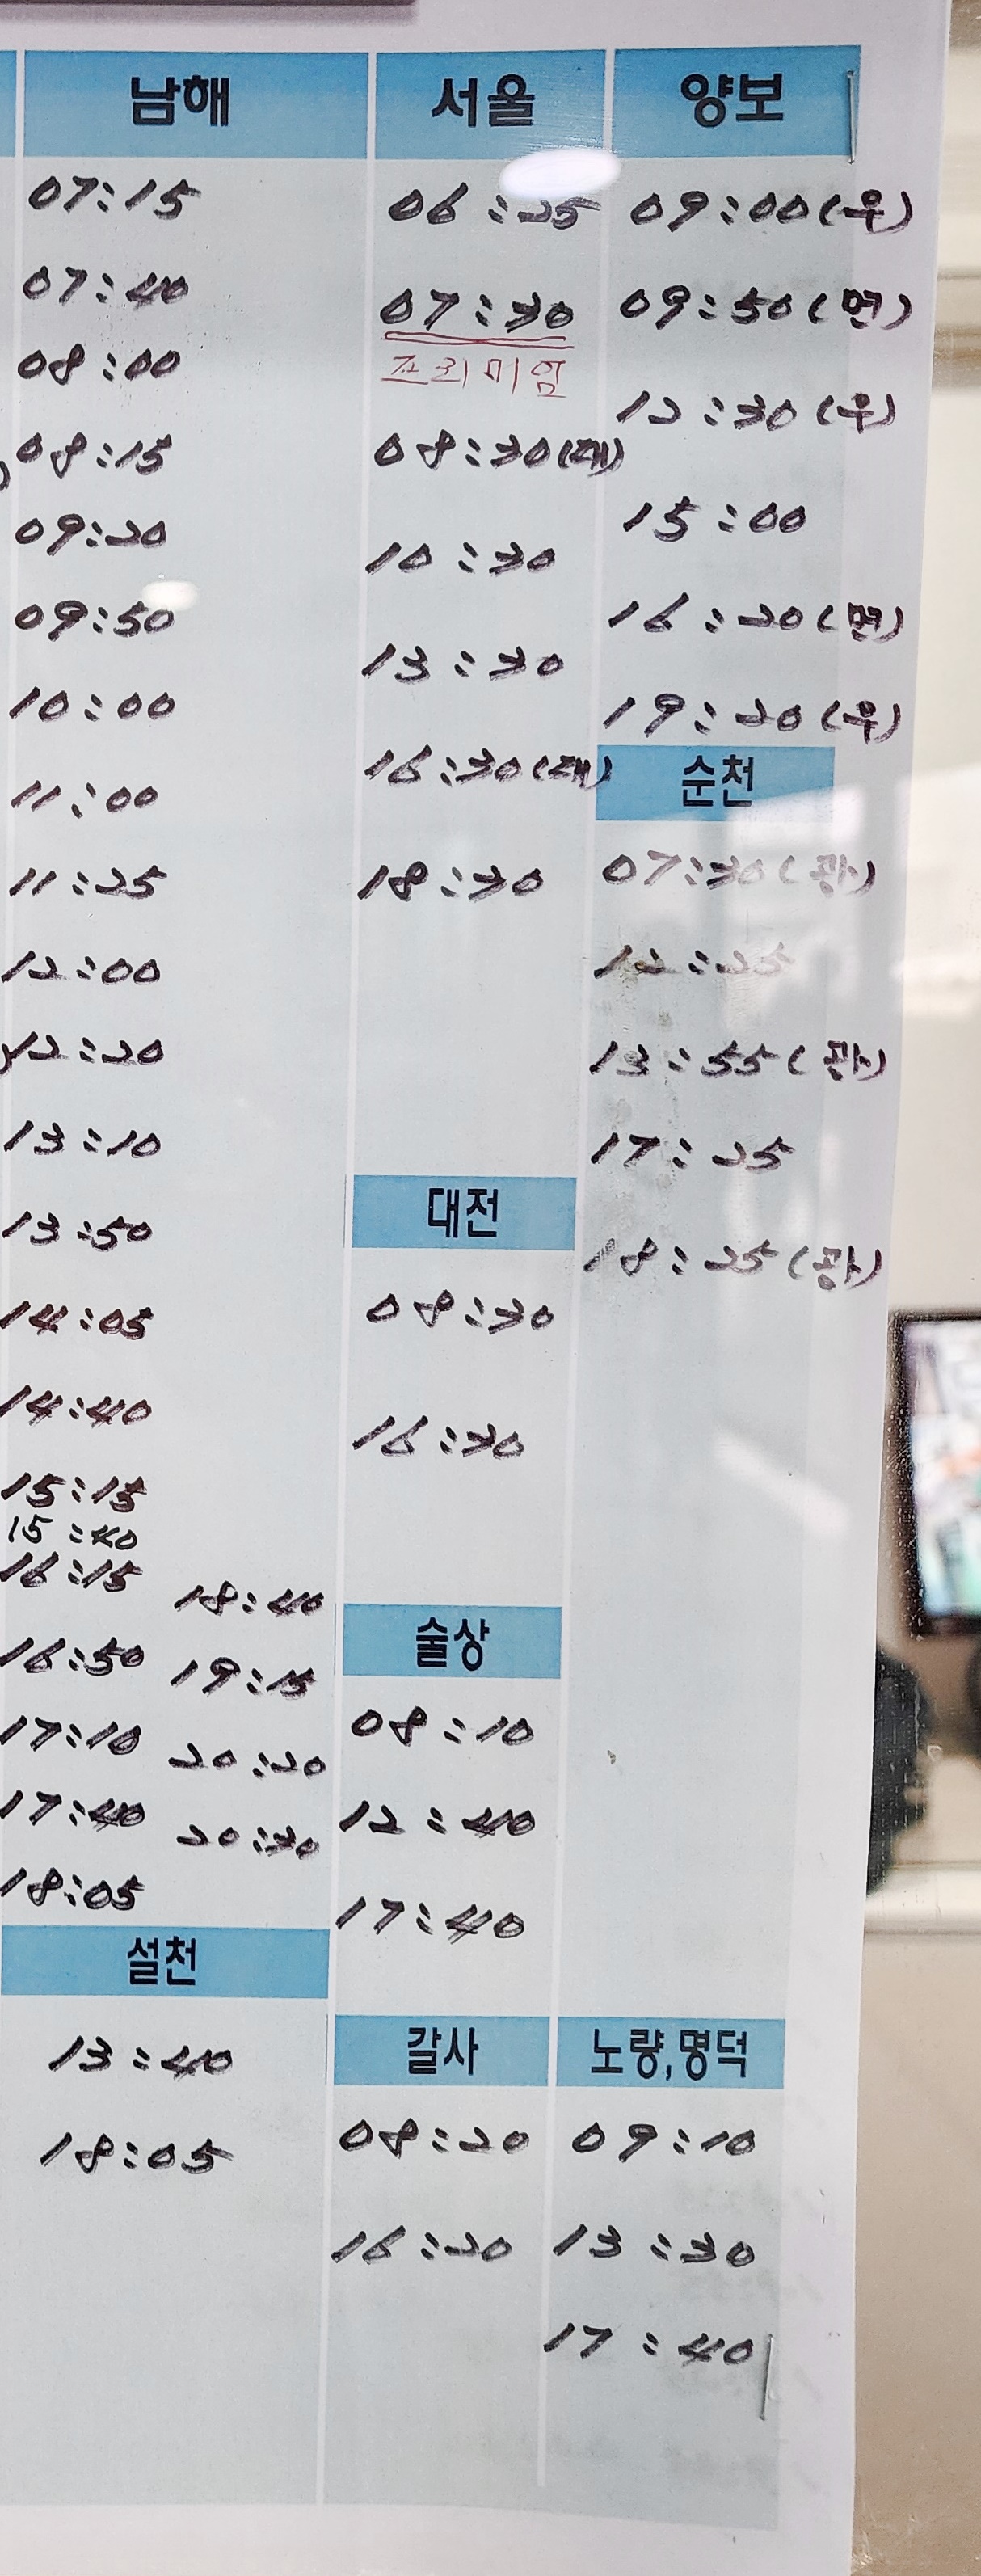 남해
07:15
07:40
08:00
08:15
09:20
09:50
10:00
11:00
11:25
12:00
12:20
13:10
13:50
14:05
14:40
15:15
15:40
16:15
16:50
17:10
17:40
18:05
18:40
19:15
20:20
20:30
설천
13:40
18:05
서울
06:25
07:30
프리미엄
08:30(대)
10:30
13:30
16:30(대)
18:30
대전
08:30
16:30
술상
08:10
12:40
17:40
갈사
08:20
16:20
양보
09:00(우)
09:50(면)
12:30(우)
15:00
16:20(면)
19:20(우)
순천
07:30(광)
12:25
13:55(광)
17:25
18:25(광)
노량,명덕
09:10
13:30
17:40